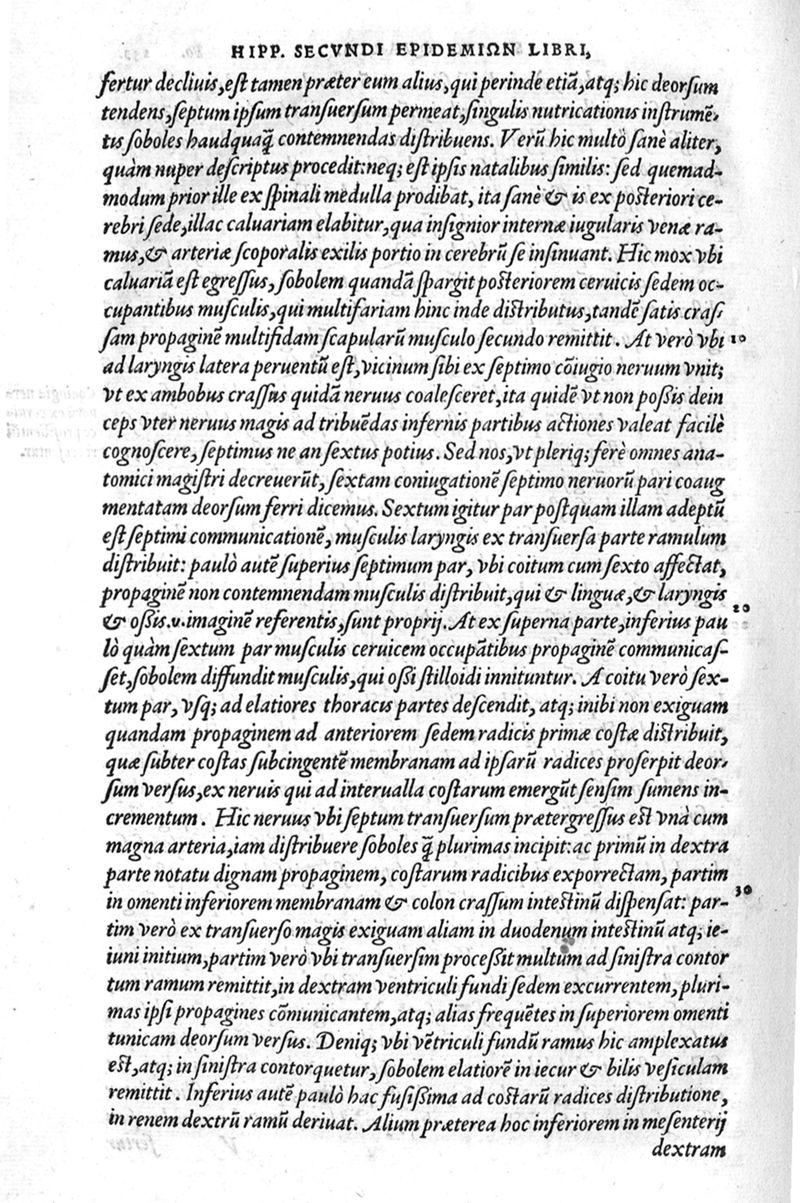 HIPP. SECVNDI EPIDEMIΩN LIBRI,
fertur decliuis, est tamen præter eum alius, qui perinde etiã, atq; hic deorsum
tendens, septum ipsum transuersum permeat, singulis nutricationis instrumẽ-
tis soboles haudquaq̃ contemnendas distribuens. Verũ hic multò sanè aliter,
quàm nuper descriptus procedit: neq; est ipsis natalibus similis: sed quemad-
modum prior ille ex spinali medulla prodibat, ita sanè & is ex posteriori ce-
rebri sede, illac caluariam elabitur, qua insignior internæ iugularis venæ ra-
mus, & arteriæ scoporalis exilis portio in cerebrũ se insinuant. Hic mox vbi
caluariã est egressus, sobolem quandã spargit posteriorem ceruicis sedem oc-
cupantibus musculis, qui multifariam hinc inde distributus, tandẽ satis cras
sam propaginẽ multifidam scapularũ musculo secundo remittit. At verò vbi 10
ad laryngis latera peruentũ est, vicinum sibi ex septimo cõiugio neruum vnit;
vt ex ambobus crassus quidã neruus coalesceret, ita quidẽ vt non possis dein
ceps vter neruus magis ad tribuẽdas infernis partibus actiones valeat facilè
cognoscere, septimus ne an sextus potius. Sed nos, vt pleriq; ferè omnes ana-
tomici magistri decreuerũt, sextam coniugationẽ septimo neruorũ pari coaug
mentatam deorsum ferri dicemus. Sextum igitur par postquam illam adeptũ
est septimi communicationẽ, musculis laryngis ex transuersa parte ramulum
distribuit: paulò autẽ superius septimum par, vbi coitum cum sexto affectat,
propaginẽ non contemnendam musculis distribuit, qui & linguæ, & laryngis
& ossis .v. imaginẽ referentis, sunt proprij. At ex superna parte, inferius pau 20
lò quàm sextum par musculis ceruicem occupãtibus propaginẽ communicas-
set, sobolem diffundit musculis, qui ossi stilloidi innituntur. A coitu verò sex-
tum par, vsq; ad elatiores thoracis partes descendit, atq; inibi non exiguam
quandam propaginem ad anteriorem sedem radicis primæ costæ distribuit,
quæ subter costas subcingentẽ membranam ad ipsarũ radices proserpit deor-
sum versus, ex neruis qui ad interualla costarum emergũt sensim sumens in-
crementum. Hic neruus vbi septum transuersum prætergressus est vnà cum
magna arteria, iam distribuere soboles q̃ plurimas incipit: ac primũ in dextra
parte notatu dignam propaginem, costarum radicibus exporrectam, partim
in omenti inferiorem membranam & colon crassum intestinũ dispensat: par- 30
tim verò ex transuerso magis exiguam aliam in duodenum intestinũ atq; ie-
iuni initium, partim verò vbi transuersim processit multũm ad sinistra contor
tum ramum remittit, in dextram ventriculi fundi sedem excurrentem, pluri-
mas ipsi propagines cõmunicantem, atq; alias frequẽtes in superiorem omenti
tunicam deorsum versus. Deniq; vbi vẽtriculi fundũ ramus hic amplexatus
est, atq; in sinistra contorquetur, sobolem elatiorẽ in iecur & bilis vesiculam
remittit. Inferius autẽ paulò hac fusissima ad costarũ radices distributione,
in renem dextrũ ramũ deriuat. Alium præterea hoc inferiorem in mesenterij
dextram